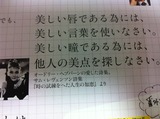 美しい唇である為には、
美しい言葉を使いなさい。
美しい瞳である為には、
他人の美点を探しなさい。
オードリー・ヘプバーンの愛した詩集、
サム・レヴェンソン詩集
「時の試練をへた人生の知恵」より